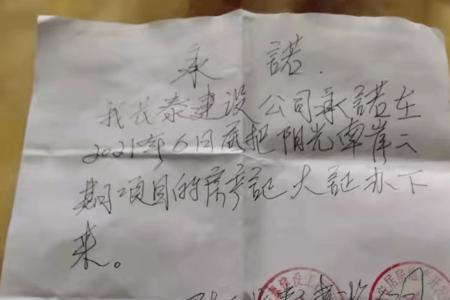 承 諾
我长泰建设公司承諾在
2021年6月底把阳光東岸二
期项目的房产証大証办下
来。